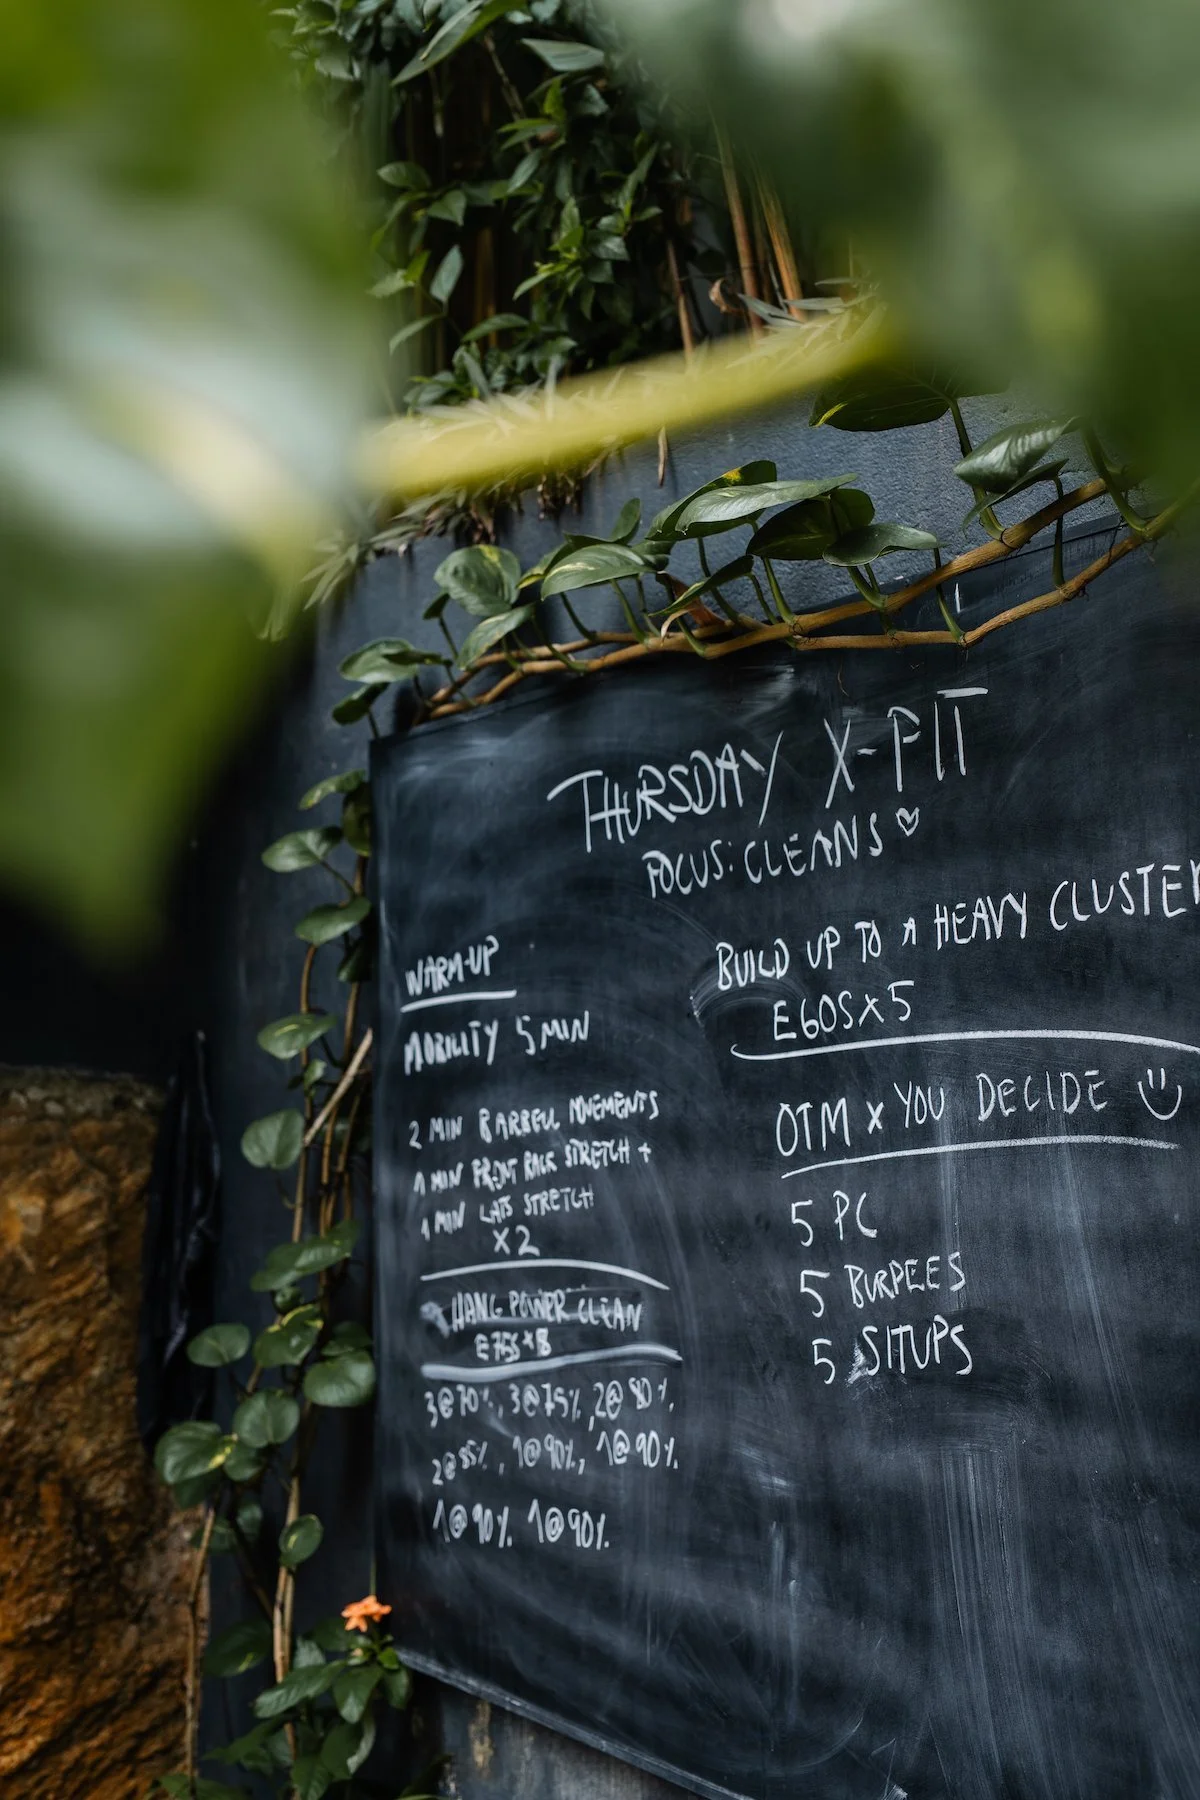 THURSDAY X-FIT
FOCUS: CLEANS ♡
WARM-UP
MOBILITY 5 MIN
2 MIN BARBELL MOVEMENTS
1 MIN FRONT RACK STRETCH +
1 MIN LATS STRETCH
X2
HANG POWER CLEAN
E75S x 8
3@70%, 3@75%, 2@80%,
2@85%, 1@90%, 1@90%,
1@90%. 1@90%.
BUILD UP TO A HEAVY CLUSTER
E60S X 5
OTM x YOU DECIDE
5 PC
5 BURPEES
5 SITUPS